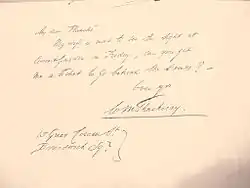 My dear
My wife is mad to see the sight at
on Friday, can you get
me a ticket to go behind the scenes? —
Ever yrs
W M Thackeray.
13 Great Coram St.
Brunswick Sqre